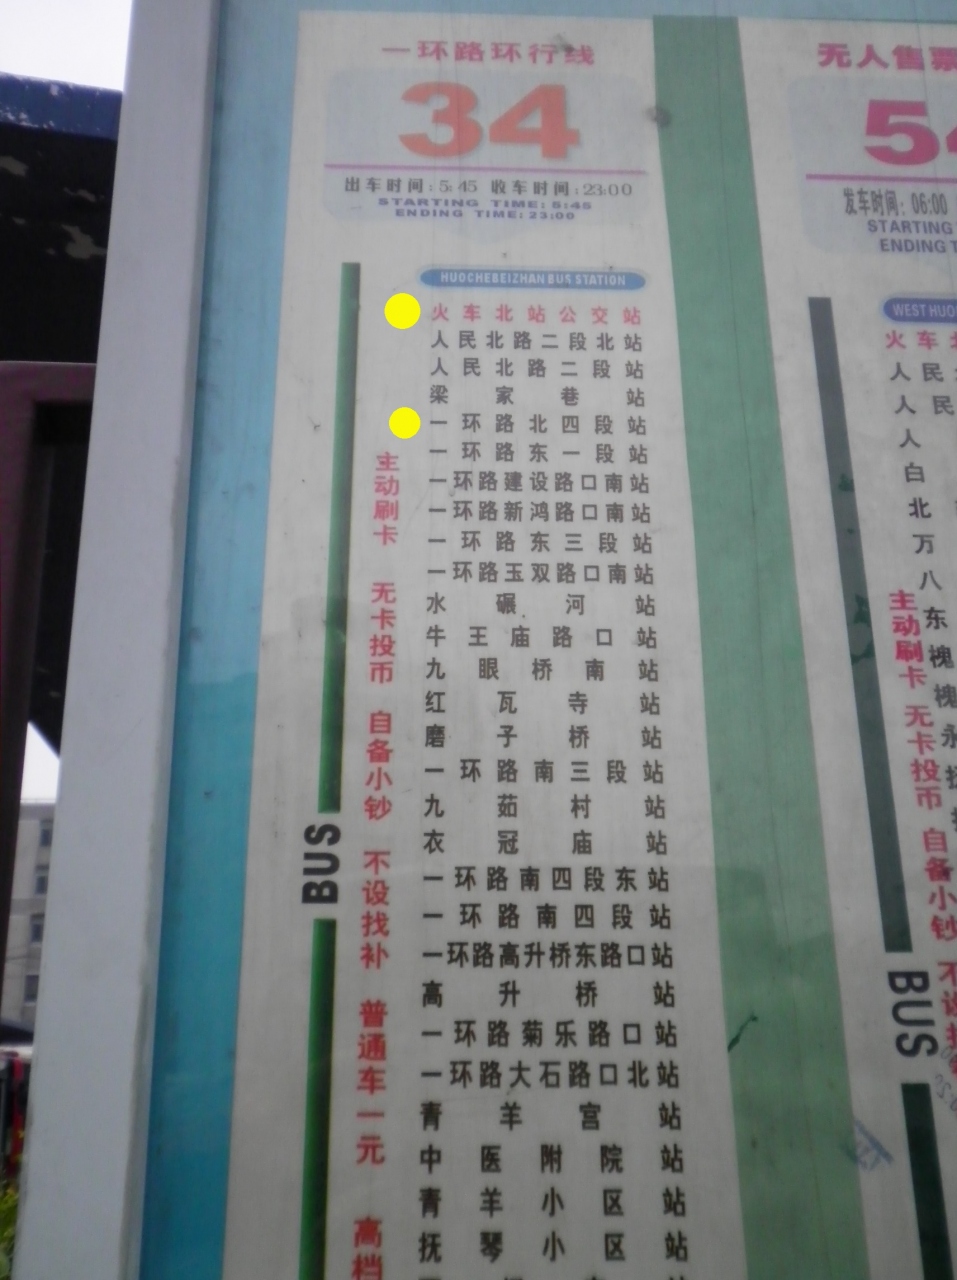 一环路环行线
34
出车时间:5:45 收车时间:23:00
STARTING TIME: 5:45
ENDING TIME: 23:00
HUOCHEBEIZHAN BUS STATION
火车北站公交站
人民北路二段北站
人民北路二段站
梁家巷站
一环路北四段站
一环路东一段站
一环路建设路口南站
一环路新鸿路口南站
一环路东三段站
一环路玉双路口南站
水碾河站
牛王庙路口站
九眼桥南站
红瓦寺站
磨子桥站
一环路南三段站
九茹村站
衣冠庙站
一环路南四段东站
一环路南四段站
一环路高升桥东路口站
高升桥站
一环路菊乐路口站
一环路大石路口北站
青羊宫站
中医附院站
青羊小区站
抚琴小区站
主动刷卡 无卡投币 自备小钞 不设找补 普通车一元 高档
BUS
无人售票
54
发车时间: 06:00
STARTING
ENDING T
WEST HUO
火车北
人民
人民
人
白
北
万
八
东
槐
槐
永
主动刷卡 无卡投币 自备小钞 不设找
BUS